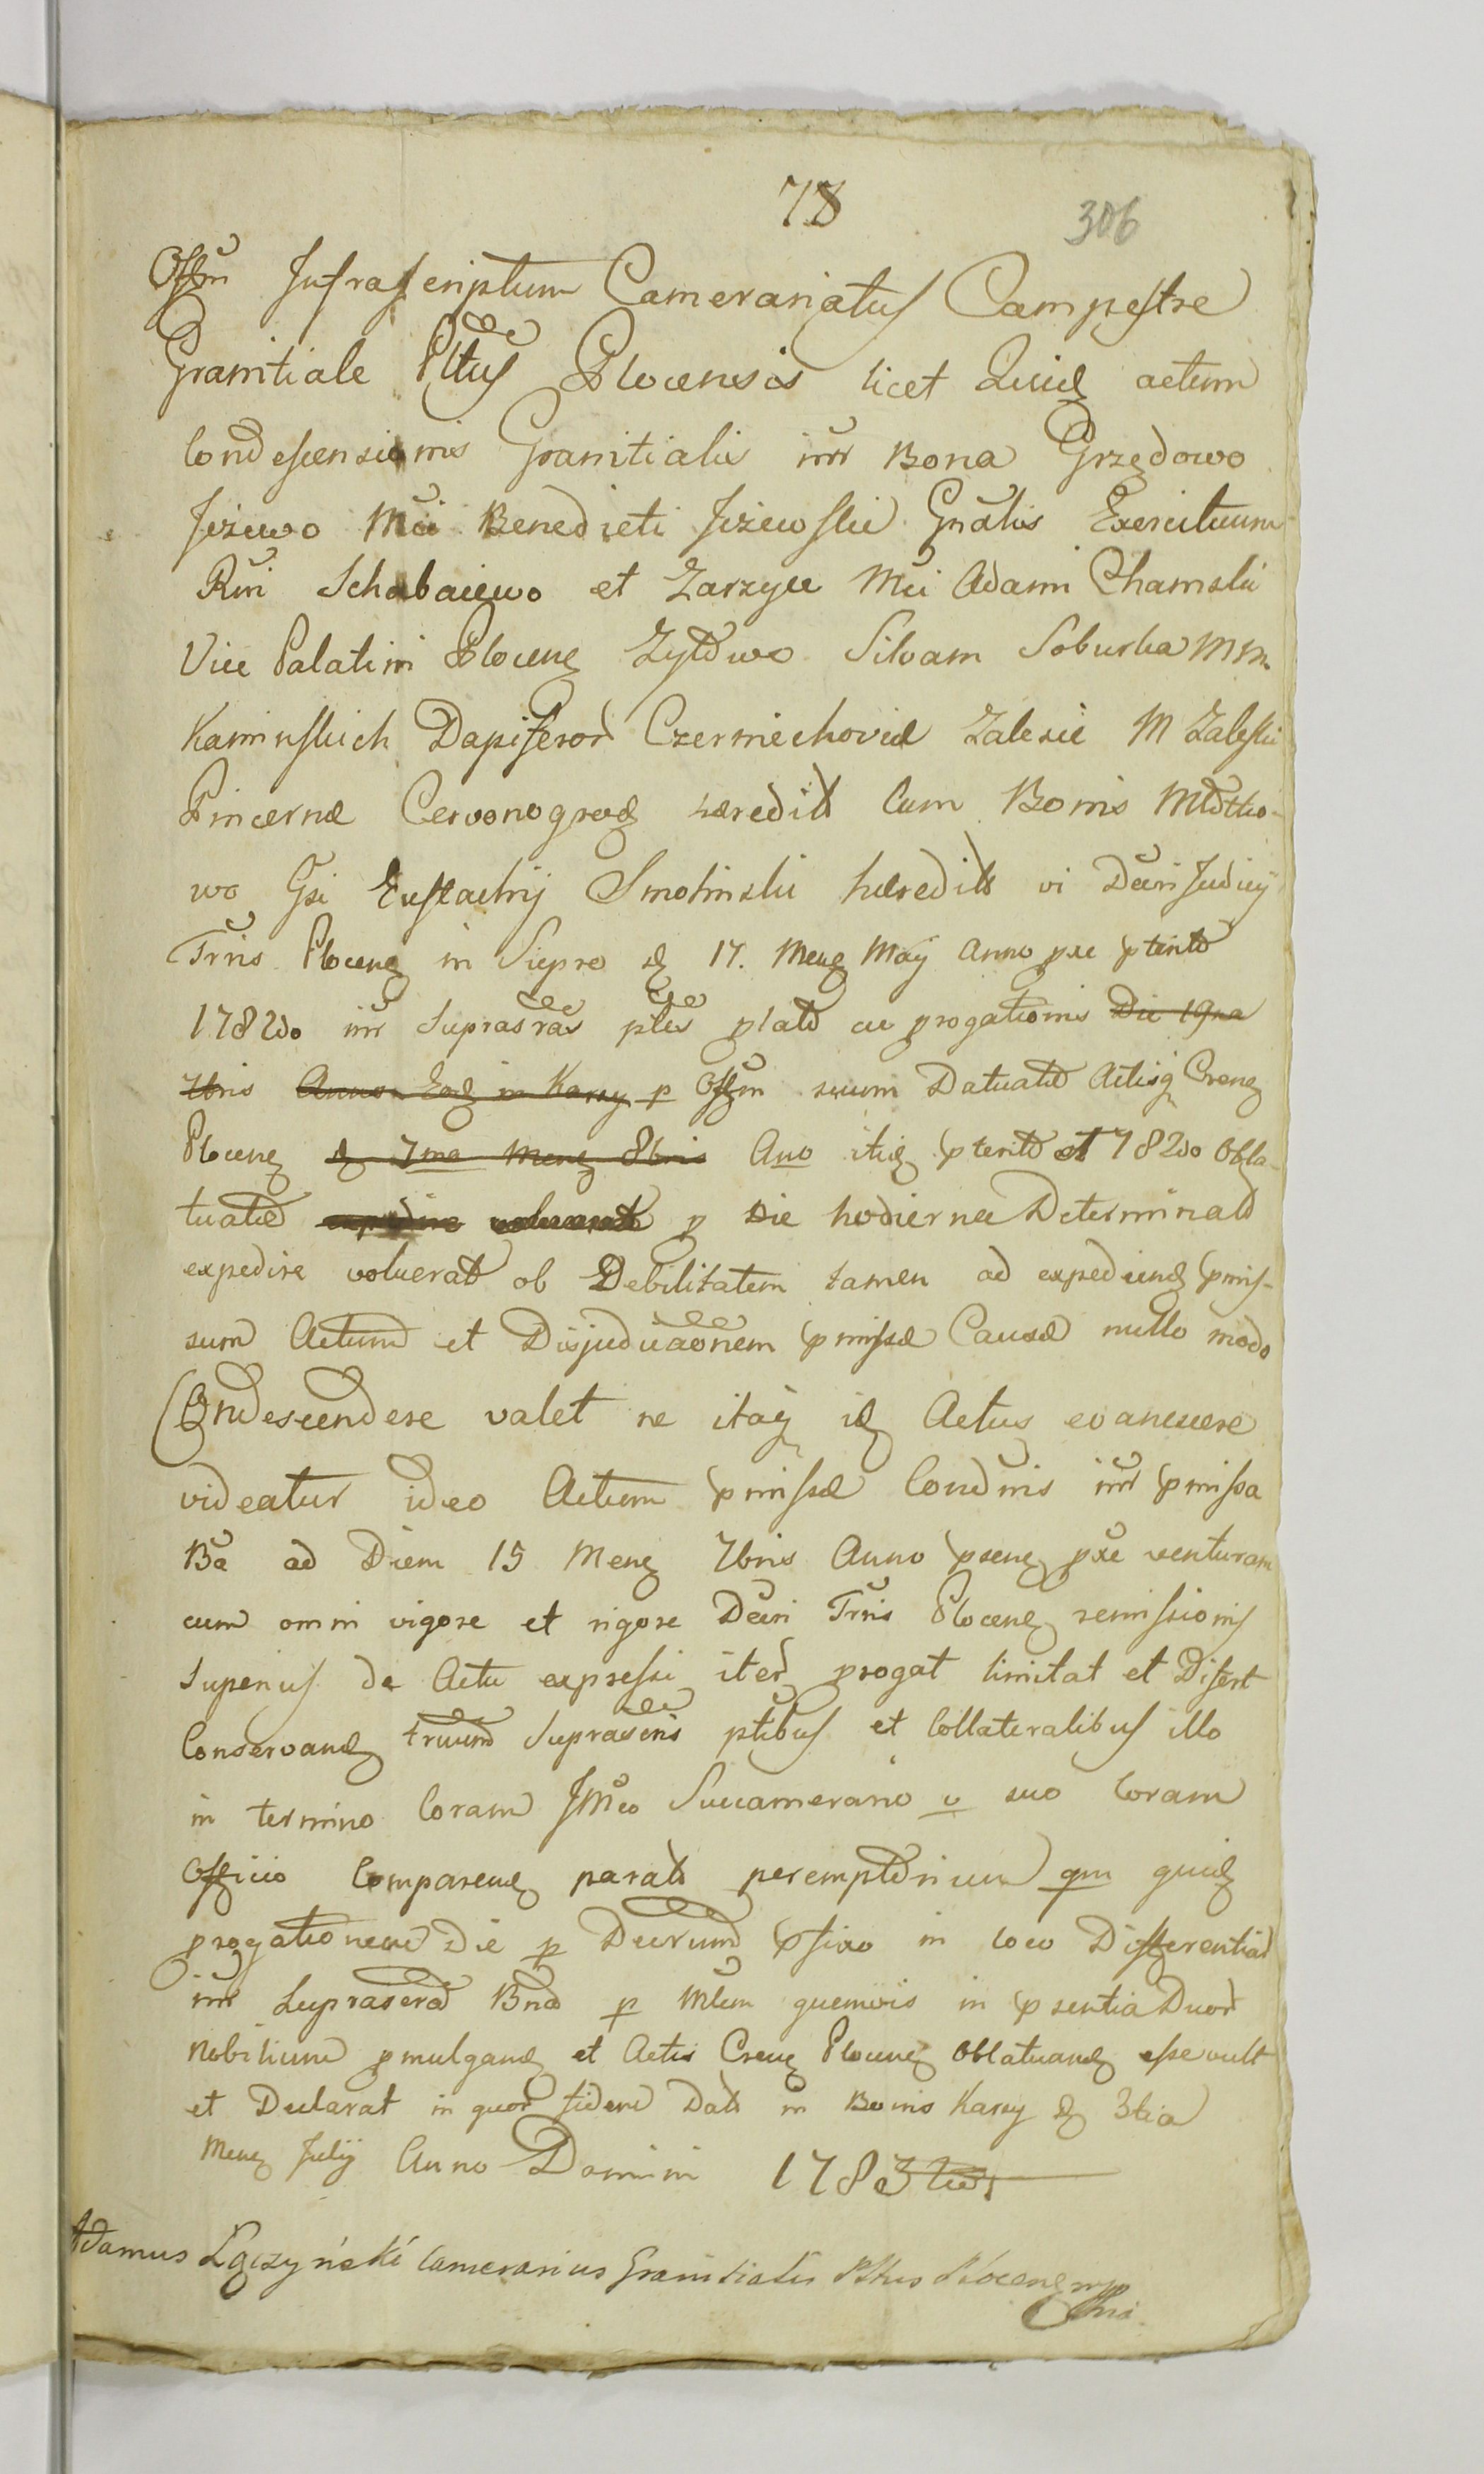 78
306
Offm Infrascriptum Camerariatus Campestre
Granitiale Pltus Plocensis licet Quidq actum
Condescensionis Granitialis inr Bona Grzędowo
Jeżewo Mci Benedicti Jeżewskie Gnalis Exercituum
Rni Schabaiewo et Zarzyce Mci Adami Chamski
Vice Palatini Plocenq Zytowo Silvam Soburka MM
Kaminskich Dapiferor Czerniechoviae Zalesie M Zaleski
Pincernae Cervonogrodq haeredit Cum Bonis Mlotko-
wo Gsi Eustachij Smolinski haeredit vi Dcri Judicij
Trnis Plocenq in Siepro dq 17. Menq May Anno pxe pterito
1782do inr Suprascras ptes plato ac progationis Die 19na
7bris Anno Eodq in Karsy p Offm suum Datuatae Actisq Crenq
Plocenq dq 7ma Menq 8bris Ano itidq pterito et 782do Obla-
tuatae expedire voluerat p Die hodierna Determinato
expedire voluerat ob Debilitatem tamen ad expediendq pmis-
sum Actum et Disjudicaonem pmissae Causae nullo modo
Condescendere valet ne itaq idq Actus evanescere
videatur ideo Actum pmissae Condnis inr pmissa
Ba ad Diem 15 Menq 7bris Anno psenq pxe venturam
cum omni vigore et rigore Dcri Trnis Plocenq remissionis
superius de Actu expressi iter progat limitat et Disert
Conservandq truum Suprascris ptibus et Collateralibus illo
in termino Coram JMco Succamerario v suo Coram
Officio Comparendq parato peremptorium qm quidq
progationem Die p Decrum pfixo in loco Differentiar
inr Suprascra Bna p Mlem quemvis in psentia Duor
Nobilium pmulgandq et Actis Crenq Plocenq Oblatuandq esse vult
et Declarat in quor fidem Dat in Bonis Karsy dq 3tia
Menq Julij Anno Domini 1783tio
Adamus Łączyński Camerarius Granitialis Pltus Plocenq mp